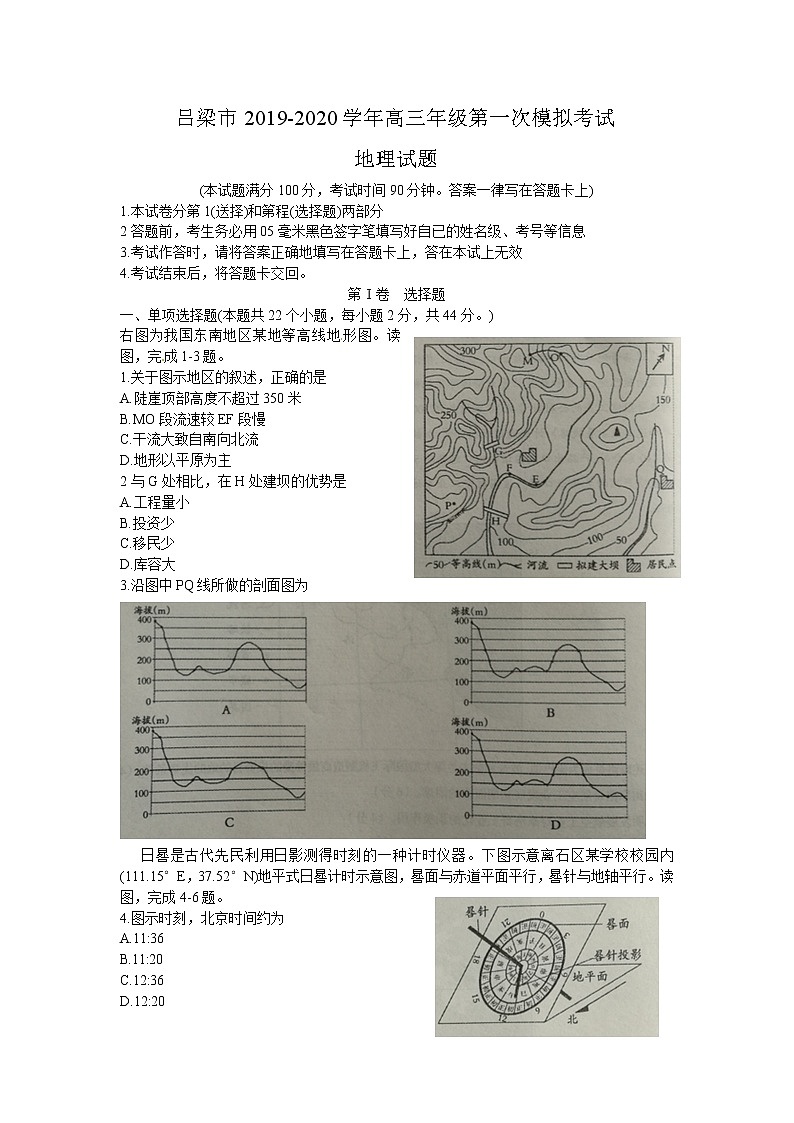 吕梁市 2019-2020 学年高三年级第一次模拟考试
地理试题
(本试题满分 100 分，考试时间 90 分钟。答案一律写在答题卡上)
1.本试卷分第 1(送择)和第程(选择题)两部分
2 答题前，考生务必用 05 毫米黑色签字笔填写好自已的姓名级、考号等信息
3.考试作答时，请将答案正确地填写在答题卡上，答在本试上无效
4.考试结束后，将答题卡交回。
第 I 卷　选择题
一、单项选择题(本题共 22 个小题，每小题 2 分，共 44 分。)
右图为我国东南地区某地等高线地形图。读
图，完成 1-3 题。
1.关于图示地区的叙述，正确的是
A.陡崖顶部高度不超过 350 米
B.MO 段流速较 EF 段慢
C.干流大致自南向北流
D.地形以平原为主
2 与 G 处相比，在 H 处建坝的优势是
A.工程量小
B.投资少
C.移民少
D.库容大
3.沿图中 PQ 线所做的剖面图为
300 M O N
150
250
G
F E
P
Q
H
100 100 50
50 等高线(m) 河流 拟建大坝 居民点
海拔(m)
400
300
200
100
0
A
海拔(m)
400
300
200
100
0
B
海拔(m)
400
300
200
100
0
C
海拔(m)
400
300
200
100
0
D
日晷是古代先民利用日影测得时刻的一种计时仪器。下图示意离石区某学校校园内
(111.15° E，37.52° N)地平式日晷计时示意图，晷面与赤道平面平行，晷针与地轴平行。读
图，完成 4-6 题。
4.图示时刻，北京时间约为
A.11:36
B.11:20
C.12:36
D.12:20
晷针
晷面
晷针投影
地平面
北
21 0 3 6 9 12 15 18